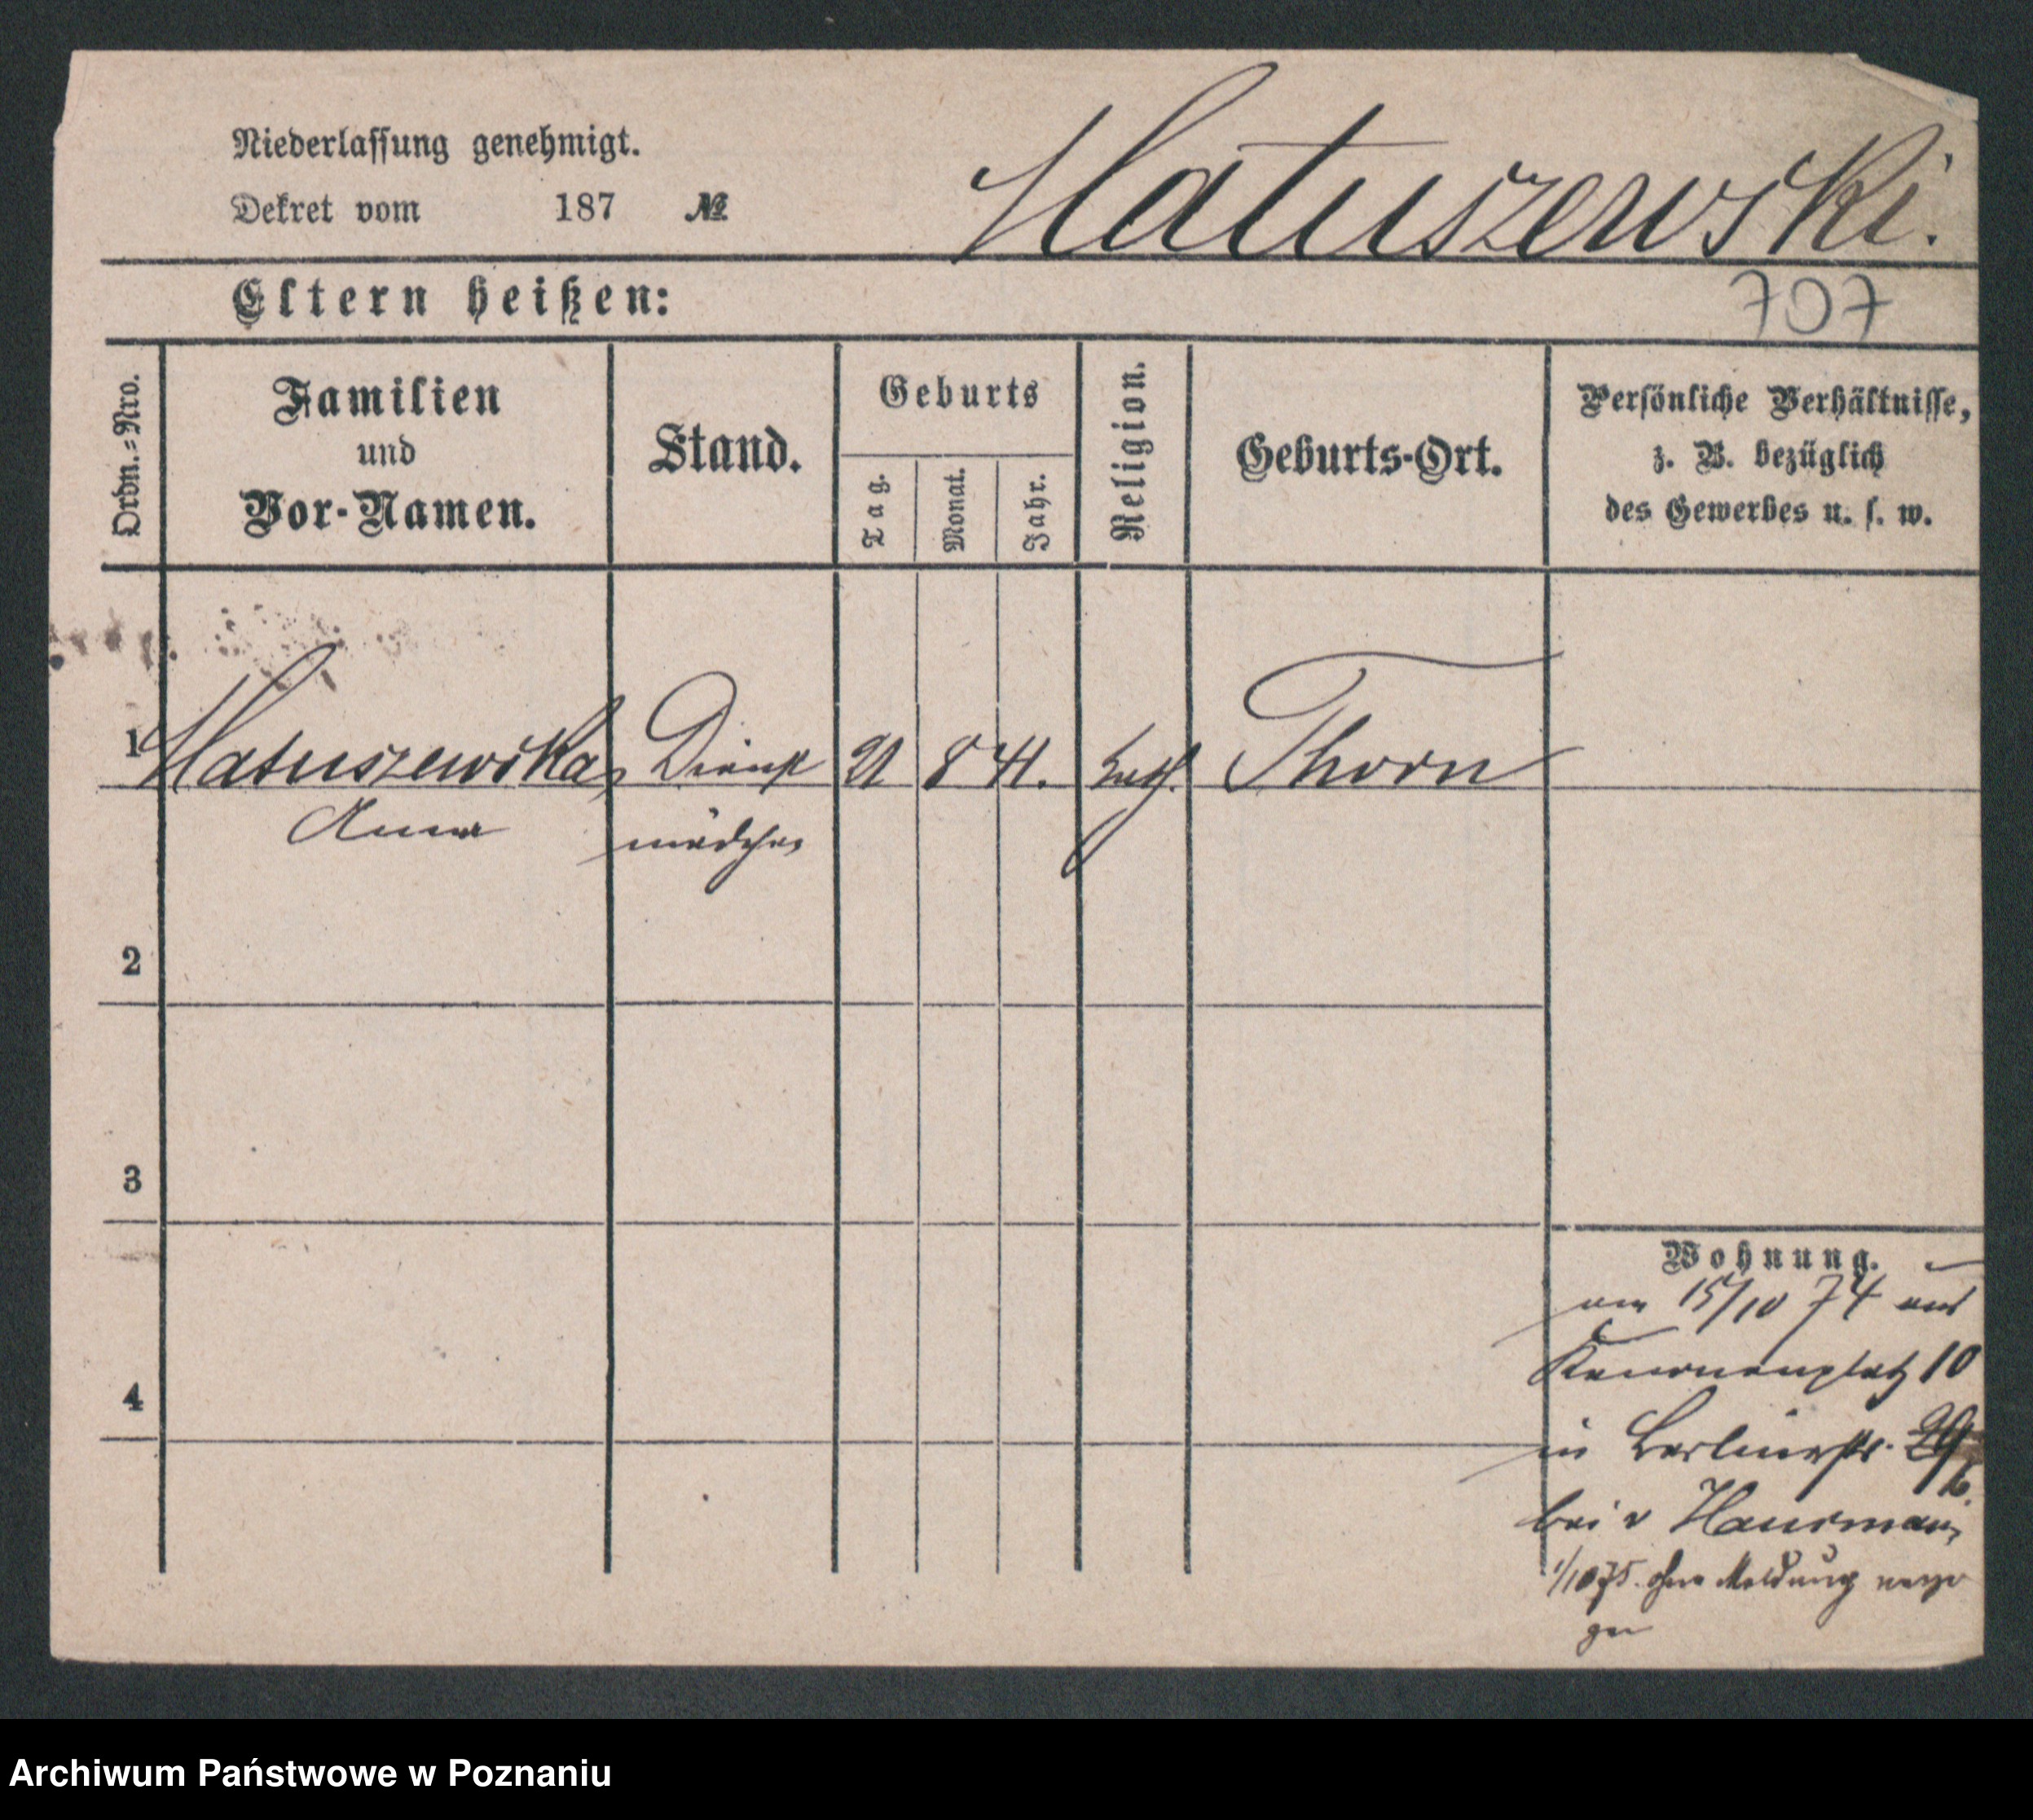 Niederlassung genehmigt.
Dekret vom 187 №
Matuszewski.
707
Eltern heißen:
Ordn.-Nro.
Familien
und
Vor-Namen.
Stand.
Geburts
Tag.
Monat.
Jahr.
Religion.
Geburts-Ort.
Persönliche Verhältnisse,
z. B. bezüglich
des Gewerbes u. s. w.
1 Matuszewska, Dienst 21 8 41. kath. Thorn
Anna mädchen
2
3
4
Wohnung.
am 15/10 74 aus
Kanonenplatz 10
in Berlinerstr.
bei v
1/10 75. ohne Meldung verzo
gen
Archiwum Państwowe w Poznaniu